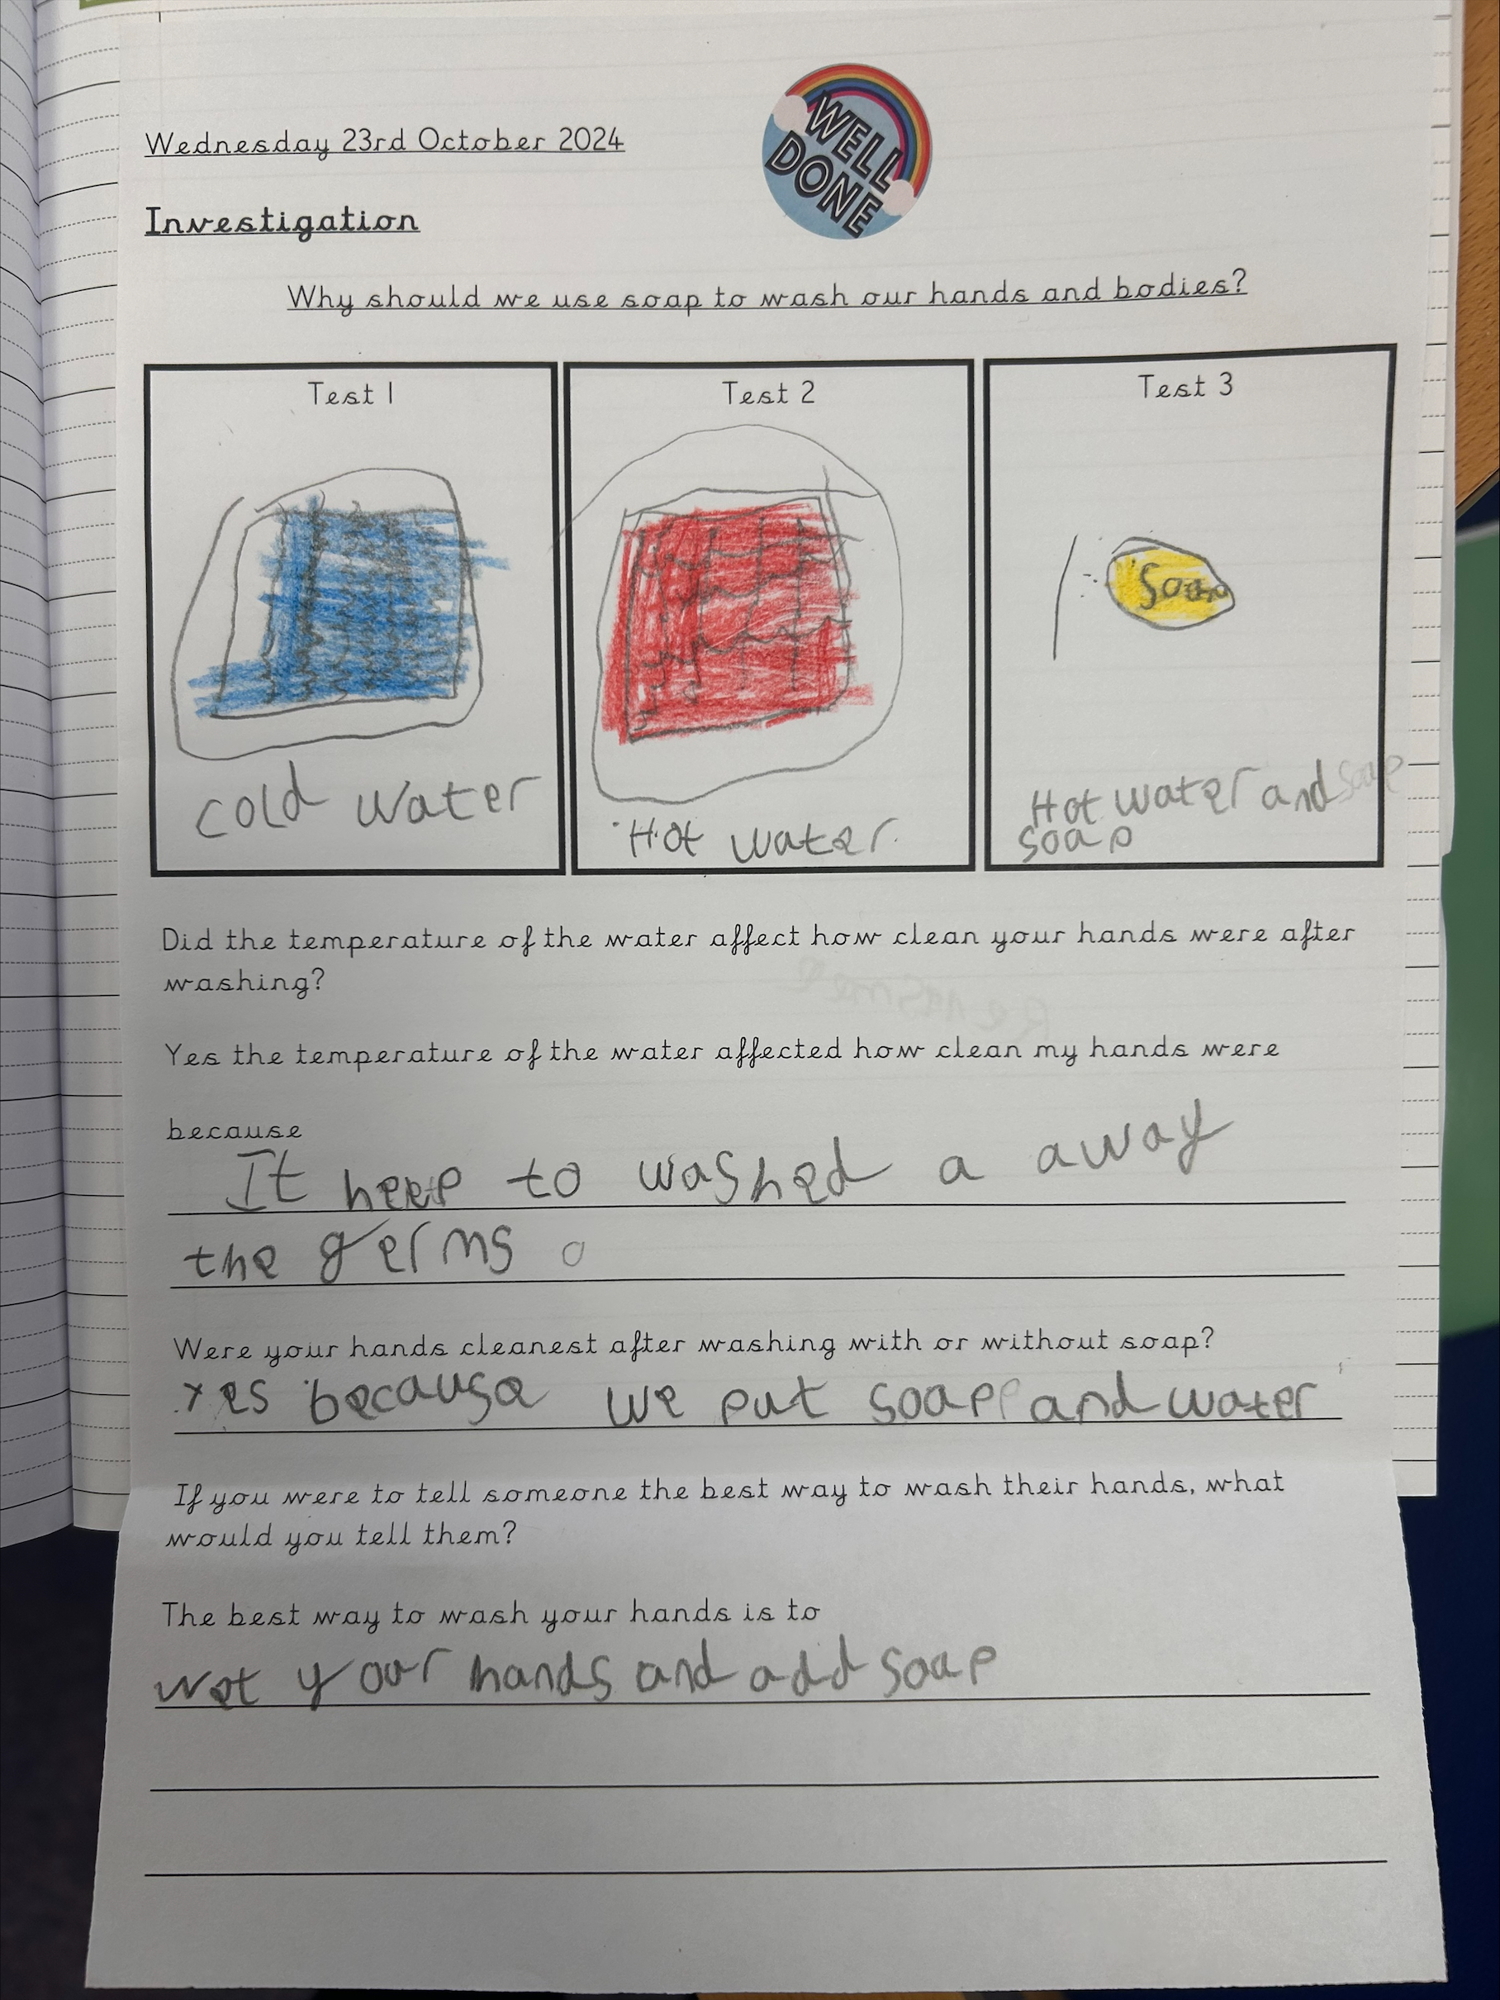 Wednesday 23rd October 2024
WELL
DONE
Investigation
Why should we use soap to wash our hands and bodies?
Test 1
Test 2
Test 3
Soap
cold water
Hot water.
Hot water and soap
soap
Did the temperature of the water affect how clean your hands were after
washing?
Yes the temperature of the water affected how clean my hands were
because
It heep to washed a away
the germs
Were your hands cleanest after washing with or without soap?
Yes because we put soap and water
If you were to tell someone the best way to wash their hands, what
would you tell them?
The best way to wash your hands is to
wet your hands and add soap